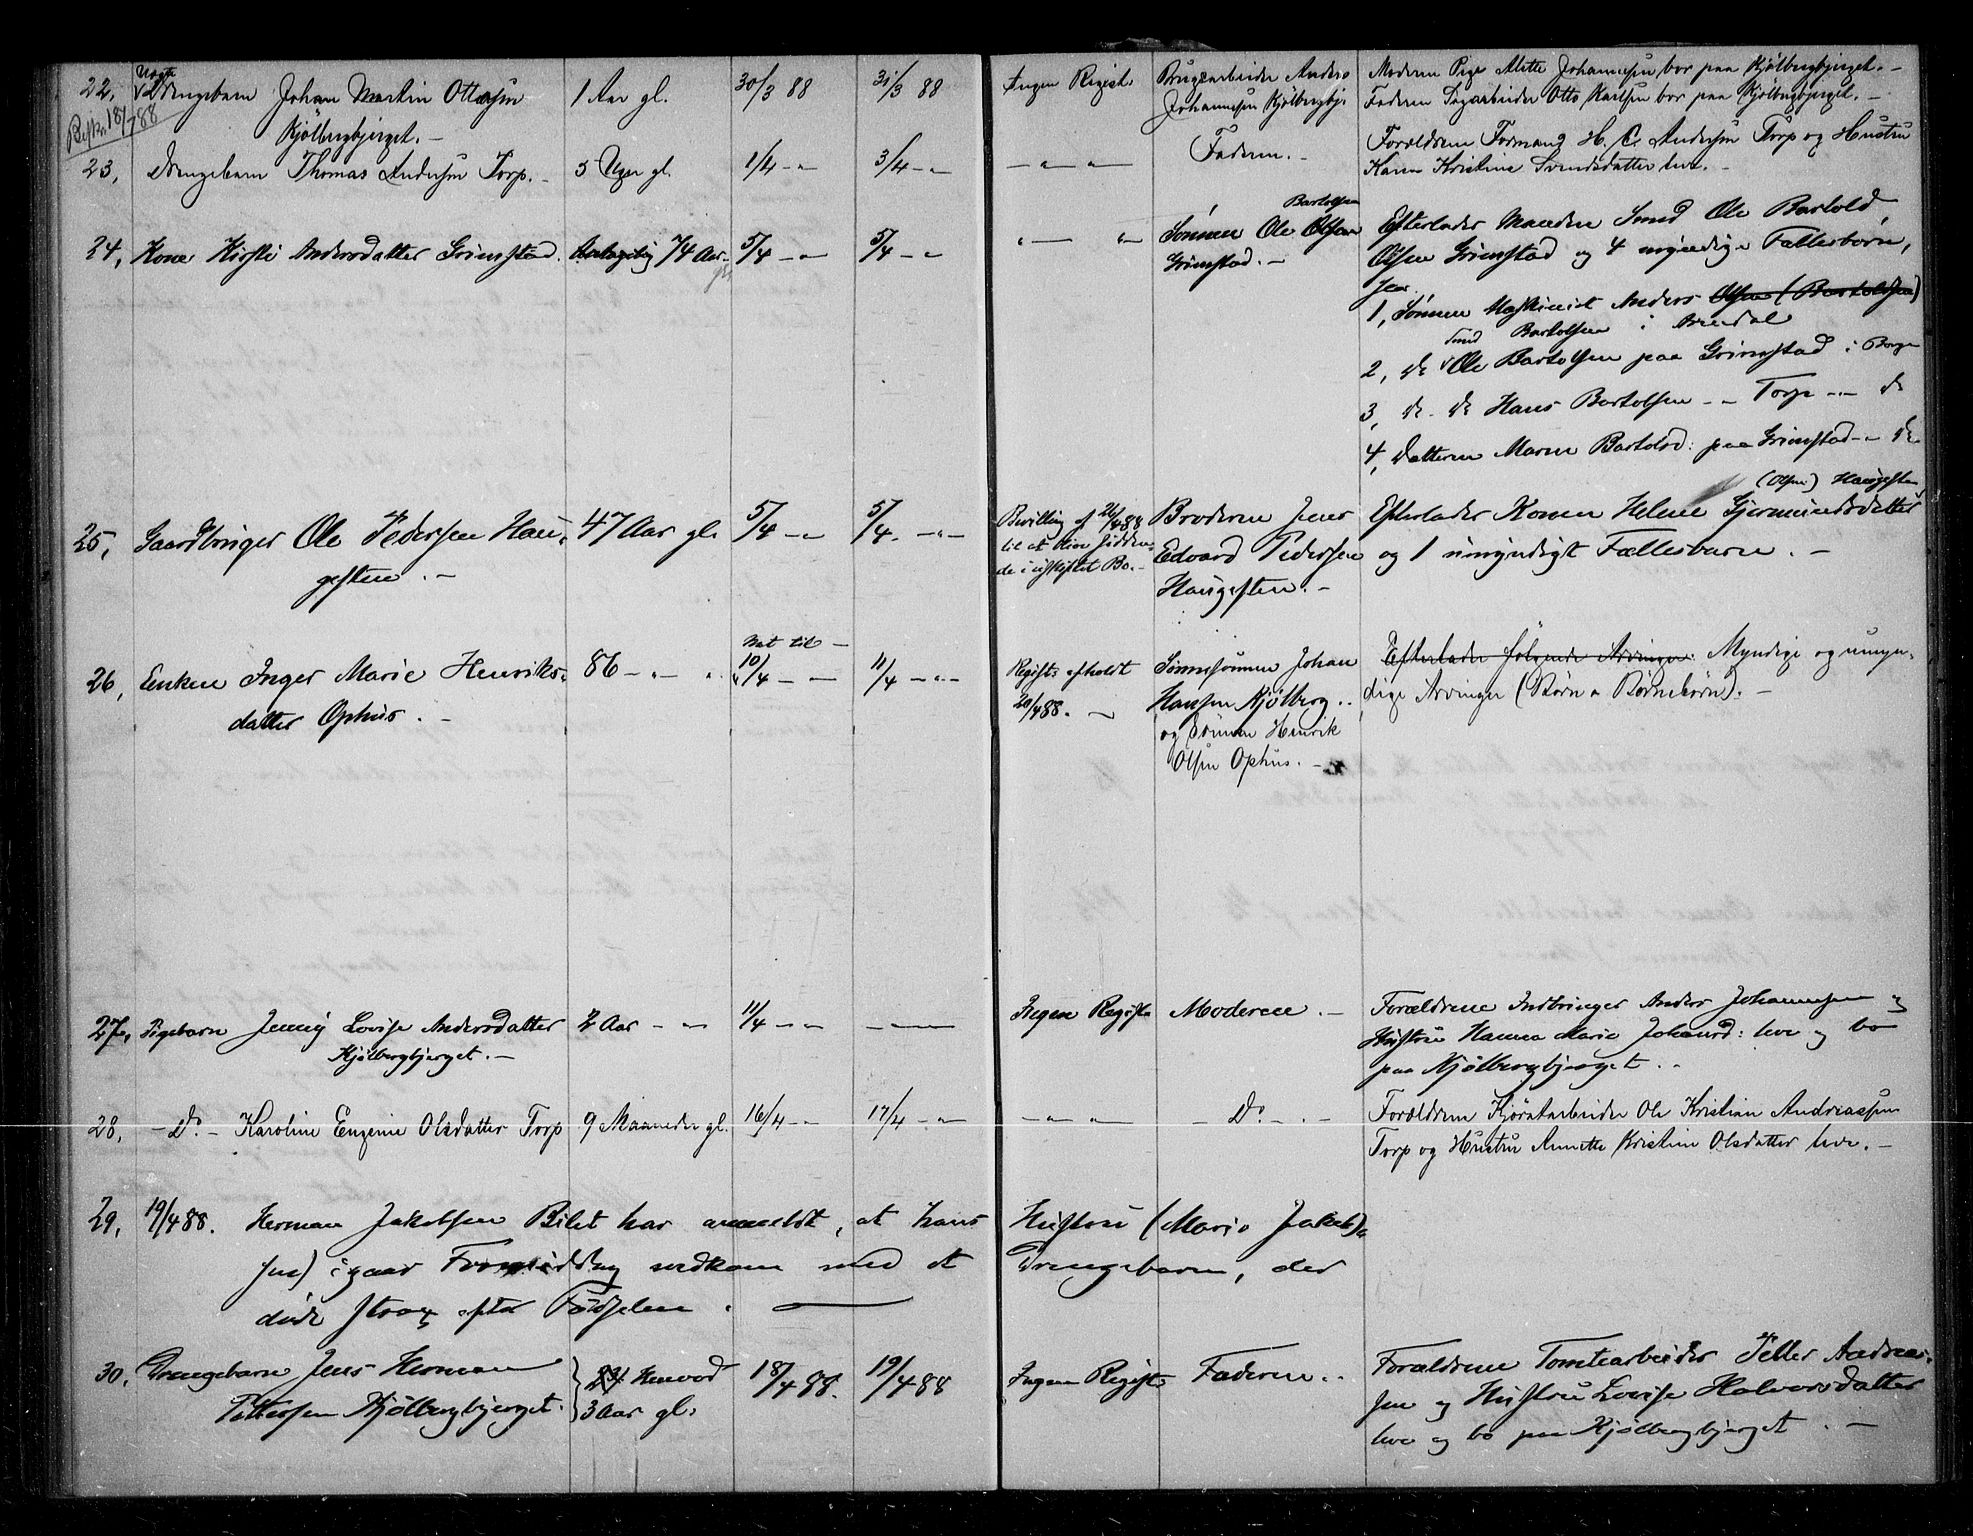 22, Uægte Drengebarn Johan Martin Ottesen 1 Aar gl. 30/3 88 31/3 88 Ingen Regist. Brugsarbeider Anders Moderen Pige Alette Johannesen bor paa Kjölbergbjerget. -
Kjölbergbjerget. - Johannesen Kjölbergbj: Faderen Sagarbeider Otto Karlsen bor paa Kjölbergbjerget. -
18/7 88
23, Drengebarn Thomas Andersen Torp. - 3 Uger gl. 1/4 - " 3/4 - " - " - " Faderen. - Forældrene Formand H. C. Andersen Torp og Hustru
Karen Kristine Svendsdatter leve. -
24, Kone Kirsti Andersdatter Grimstad. 74 Aar 5/4 - " 5/4 - " " - " Sønnen Ole Olsen Efterlader Manden Smed Ole Bartold
Bartolsen
Grimstad. - Olsen Grimstad og 4 myndige Fællesbørn,
1, Sønnen Maskinist Anders Olsen (Bartoldsen)
Bartolsen i Arendal
2, do Smed Ole Bartolsen paa Grimstad i Borge
3, do. do Hans Bartolsen - " Torp - " do
4, Datteren Maren Bartolsd: paa Grimstad - " do
25, Gaardbruger Ole Pedersen Hau- 47 Aar gl. 5/4 - " 5/4. - " - Bevilling af 26/4 88 Broderen Jens Efterlader Konen Helene Gjermundsdatter
(Olsen) Haugesten
gesten. - til at hensidden- Edvard Pedersen og 1 umyndigt Fællesbarn. -
de i uskiftet Bo. - Haugesten. -
26, Enken Inger Marie Henriks- 86 - " - " Nat til - 10/4 - - 11/4 - " - Registr. afholdt Sønnesønnen Johan Efterlader følgende Arvinger. Myndige og umyn-
datter Ophus. - 20/4 88. - Hansen Kjölberg.. dige Arvinger (Børn & Børnebørn). -
og Sønnen Henrik
Olsen Ophus. -
27, Pigebarn Jenny Lovise Andersdatter 2 Aar - " 11/4 - " - " - Ingen Regist. Moderen. - Forældrene Indbringer Anders Johannesen og
Kjölbergbjerget. - Hustru Hanna Marie Johansd: leve og bo
paa Kjölbergbjerget..
28, - Do. - Karoline Eugenie Olsdatter Torp 9 Maaneder gl. 16/4 - " 17/4 - " - " - " - Do. - . - Forældrene Kjöratarbeider Ole Kristian Andreassen
Torp og Hustru Annette Kristine Olsdatter leve. -
29, 19/4 88. Herman Jakobsen Bilet har anmeldt, at hans Hustru (Marie Jakob-
sen) igaar Formiddag nedkom med et Drengebarn, der
døde strax efter Fødselen. -
30, Drengebarn Jens Herman henved 18/4 88. 19/4 88 Ingen Regist. Faderen.. Forældrene Tomtearbeider Petter Andreas-
Pettersen Kjölbergbjerget. 3 Aar gl. sen og Hustru Lovise Halvorsdatter
leve og bo paa Kjölbergbjerget. -